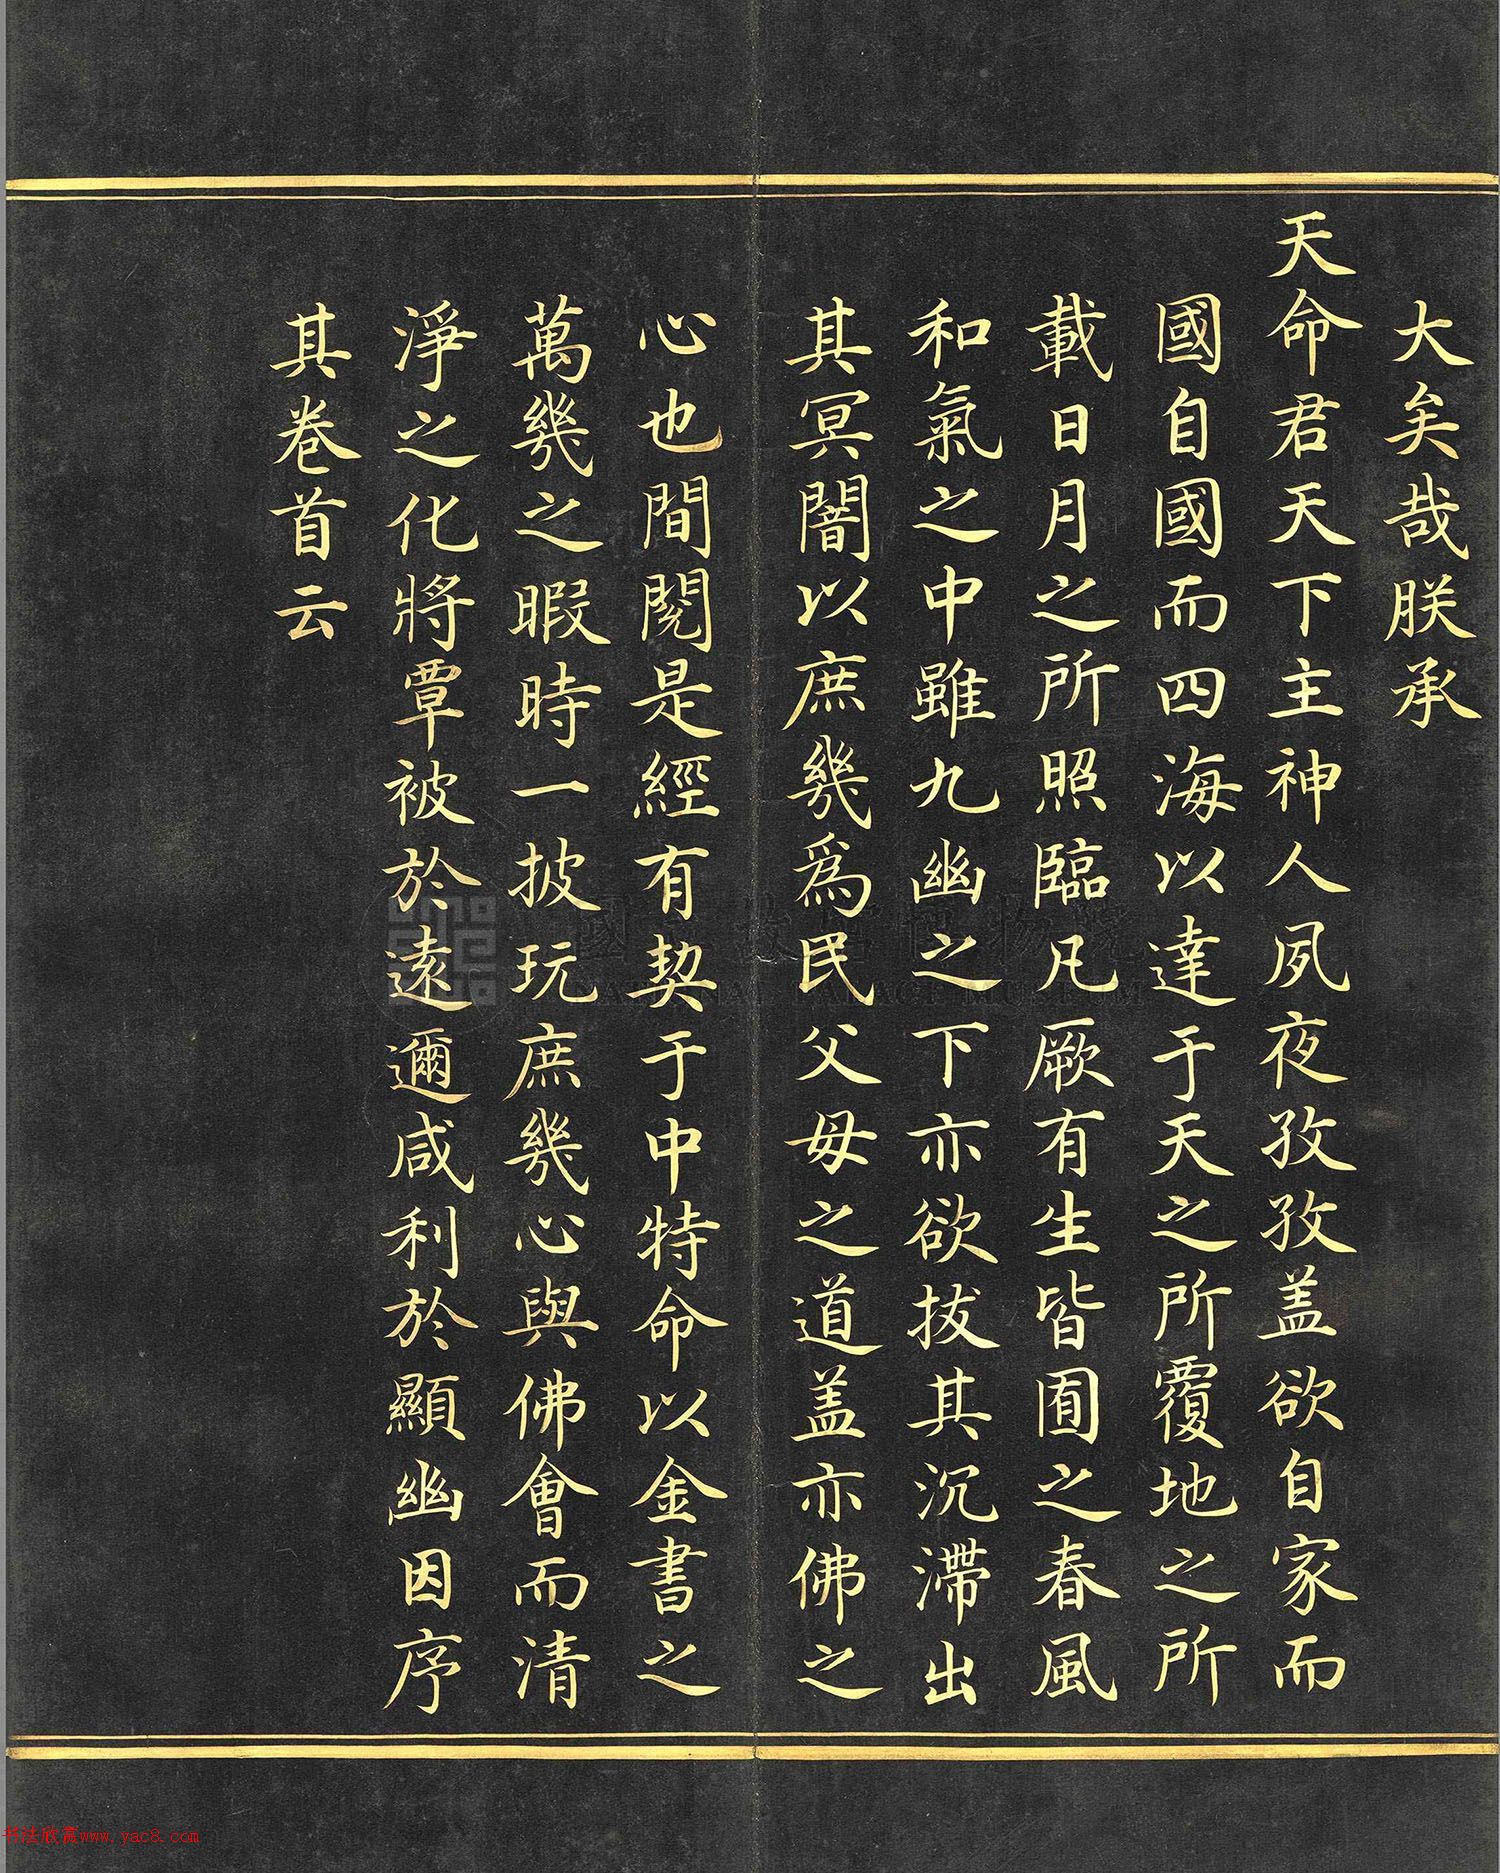 大矣哉朕承
天命君天下主神人夙夜孜孜盖欲自家而
國自國而四海以達于天之所覆地之所
載日月之所照臨凡厥有生皆囿之春風
和氣之中雖九幽之下亦欲拔其沉滯出
其冥闇以庶幾爲民父母之道盖亦佛之
心也間閱是經有契于中特命以金書之
萬幾之暇時一披玩庶幾心與佛會而清
淨之化將覃被於遠邇咸利於顯幽因序
其卷首云
國立故宮博物院
NATIONAL PALACE MUSEUM
书法欣赏www.yac8.com